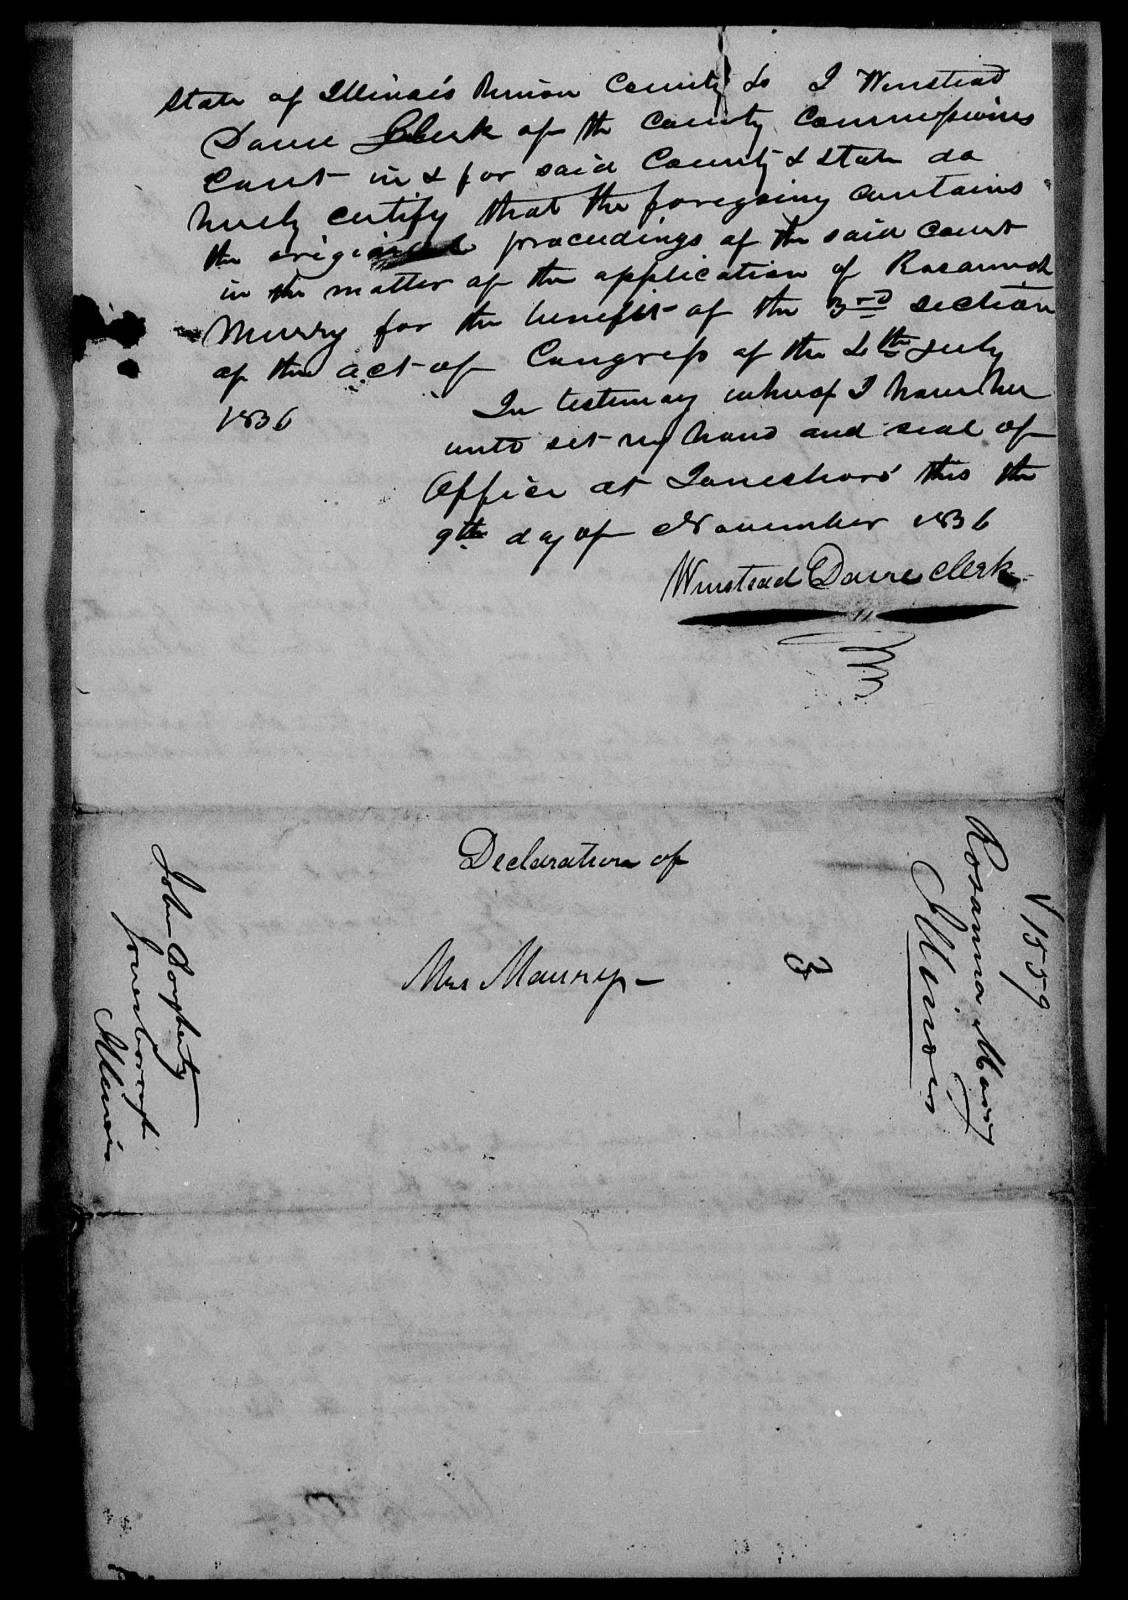 State of Illinois Union County Ss I Winstead
Davie Clerk of the County Commissioners
Court in & for said County & State do
herely certify that the foregoing contains
the original proceedings of the said court
in the matter of the application of Rosannah
Murry for the benefit of the 3rd section
of the act of Congress of the 4th July
1836
In testimony whereof I have here
unto set my hand and seal of
Office at Jonesboro' this the
9th day of November 1836
Winstead Davie Clerk
Declaration of
Mrs Maurry
3
√ 1559
Rosanna Maury
Illinois
John Dogherty
Jonesborough
Illinois